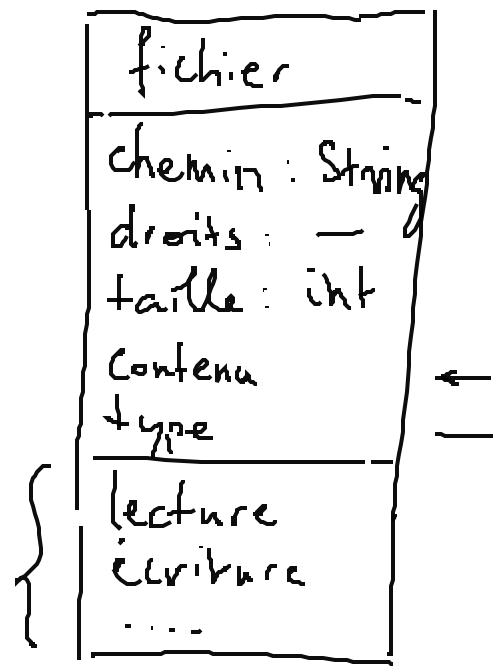 fichier
chemin : String
droits : —
taille : int
contenu
type
lecture
écriture
....